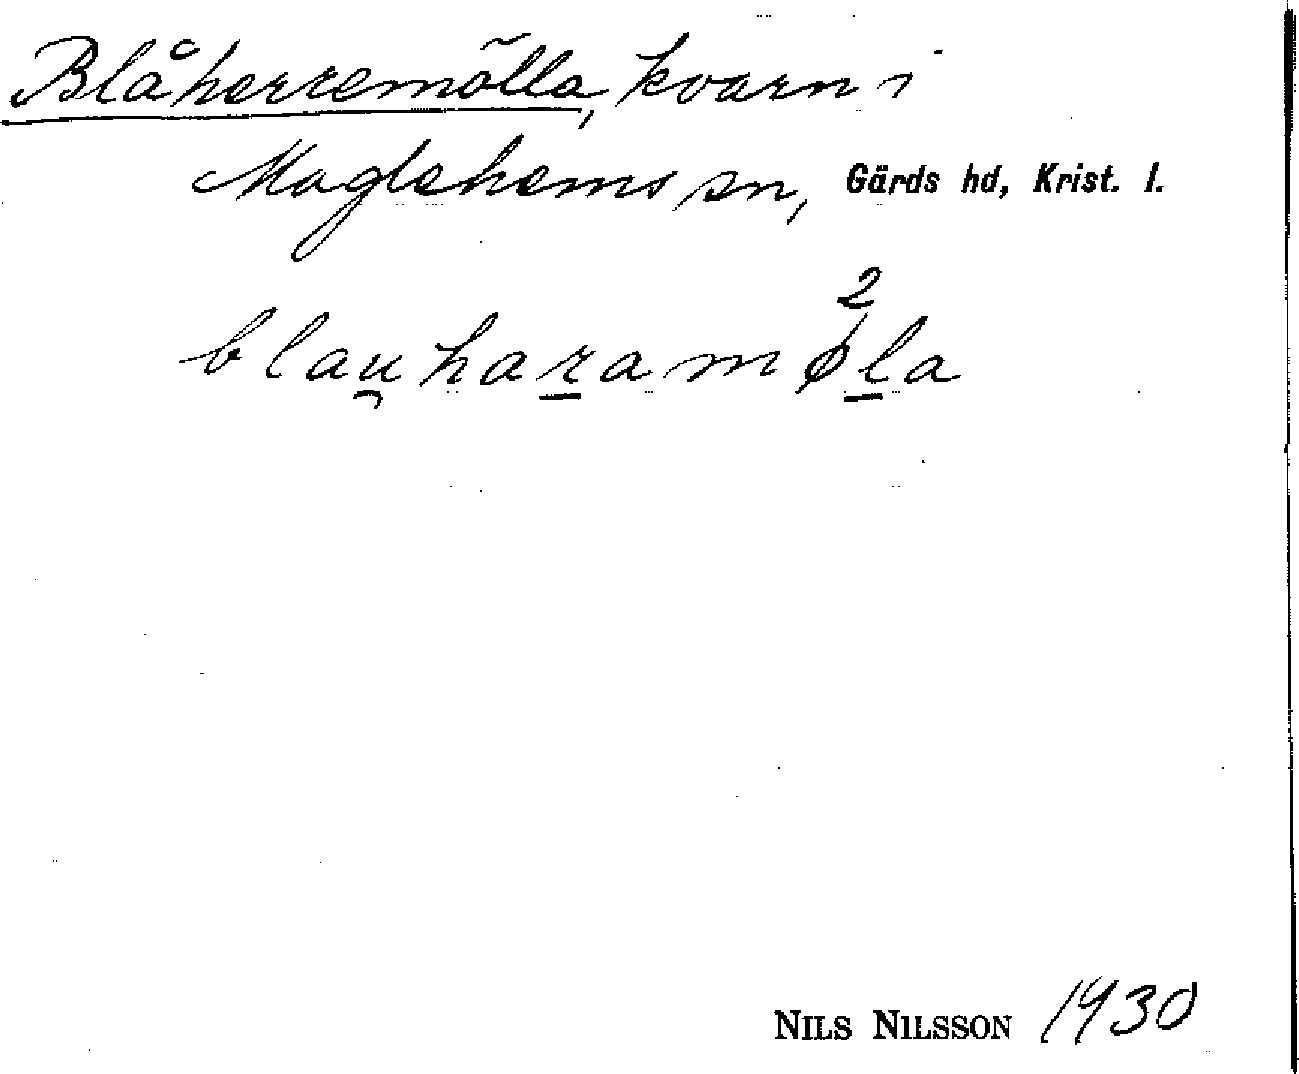 Blåherremölla, kvarn i
Maglehems sn, Gärds hd, Krist. l.
blau̯haramø²la
NILS NILSSON 1930